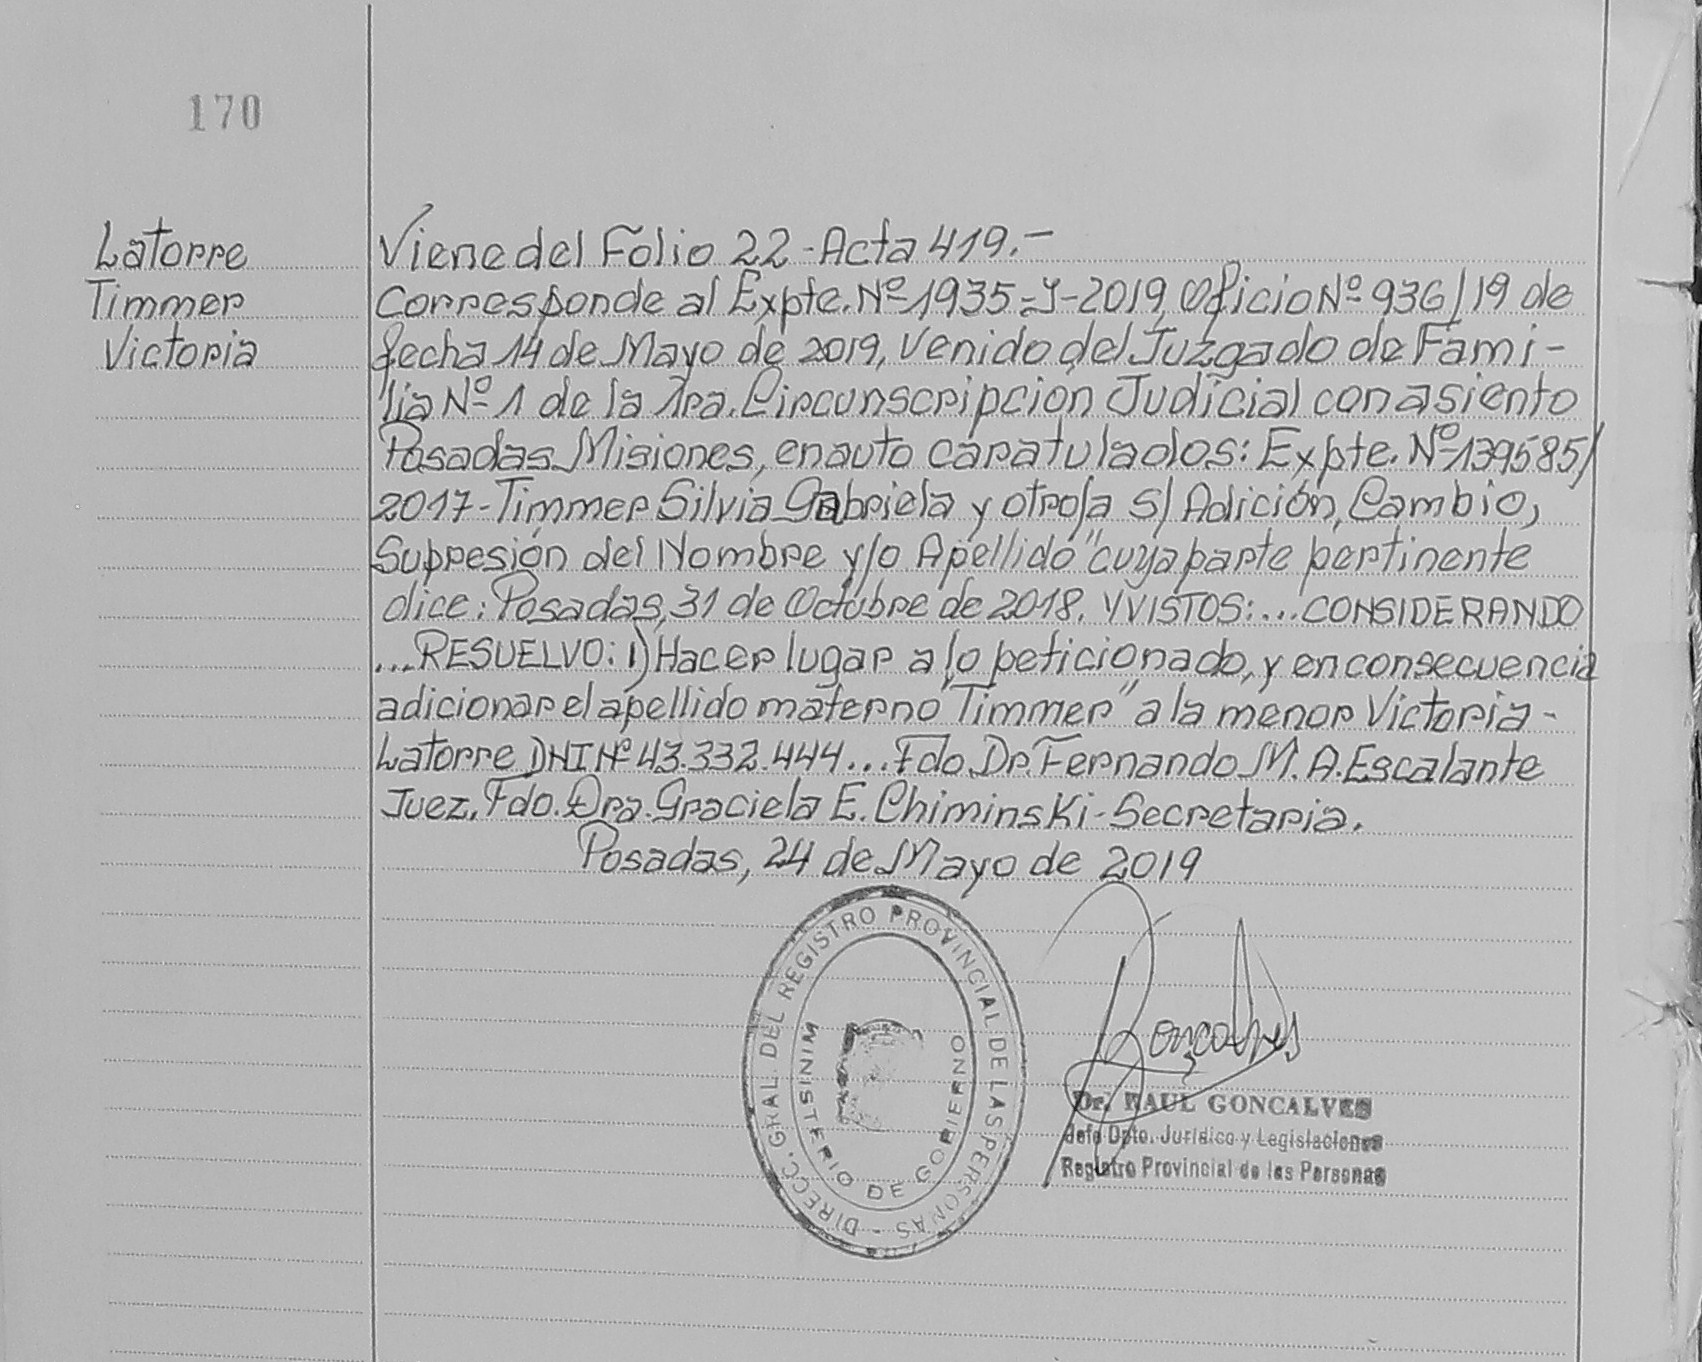 170
Latorre
Timmer
Victoria
Viene del Folio 22 - Acta 419.-
Corresponde al Expte. Nº 1935-Y-2019, Oficio Nº 936/19 de
fecha 14 de Mayo de 2019, Venido del Juzgado de Fami-
lia Nº 1 de la 1ra. Circunscripción Judicial con asiento
Posadas Misiones, en auto caratulados: Expte. Nº 139585/
2017 - Timmer Silvia Gabriela y otro/a S/ Adición, Cambio,
Supresión del Nombre y/o Apellido" cuya parte pertinente
dice: Posadas, 31 de Octubre de 2018. Y VISTOS:... CONSIDERANDO
...RESUELVO: 1) Hacer lugar a lo peticionado, y en consecuencia
adicionar el apellido materno "Timmer" a la menor Victoria -
Latorre DNI Nº 43.332.444... Fdo. Dr. Fernando M. A. Escalante
Juez. Fdo. Dra. Graciela E. Chiminski - Secretaria.
Posadas, 24 de Mayo de 2019
DIRECC. GRAL. DEL REGISTRO PROVINCIAL DE LAS PERSONAS -
MINISTERIO DE GOBIERNO
Gonçalves
Dr. RAUL GONCALVES
Jefe Dpto. Jurídico y Legislaciones
Registro Provincial de las Personas